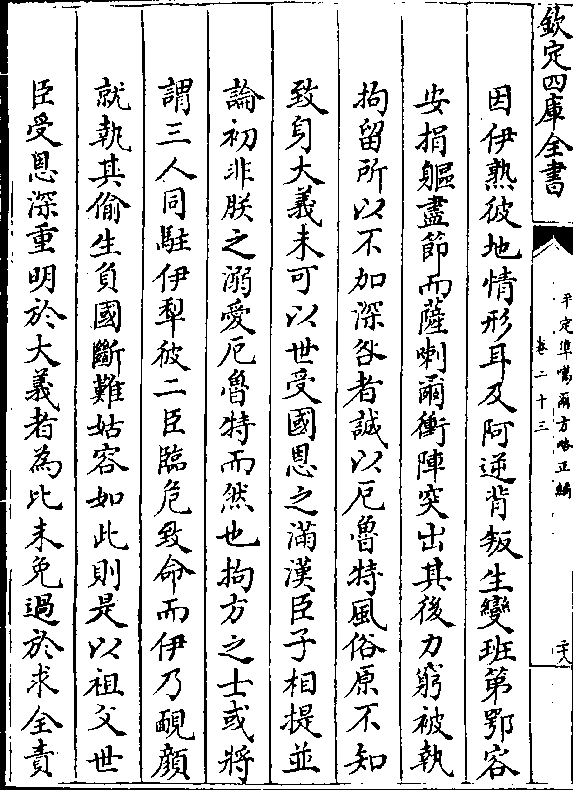 欽定四庫全書
平定準噶爾方略正編
卷二十三
二十八
因伊熟彼地情形耳及阿逆背叛生變班第鄂容
安捐軀盡節而薩喇爾衝陣突出其後力窮被執
拘留所以不加深咎者誠以厄魯特風俗原不知
致身大義未可以世受國恩之滿漢臣子相提並
論初非朕之溺愛厄魯特而然也拘方之士或將
謂三人同駐伊犂彼二臣臨危致命而伊乃靦顔
就執其偷生負國斷難姑容如此則是以祖父世
臣受恩深重明於大義者為比未免過於求全責